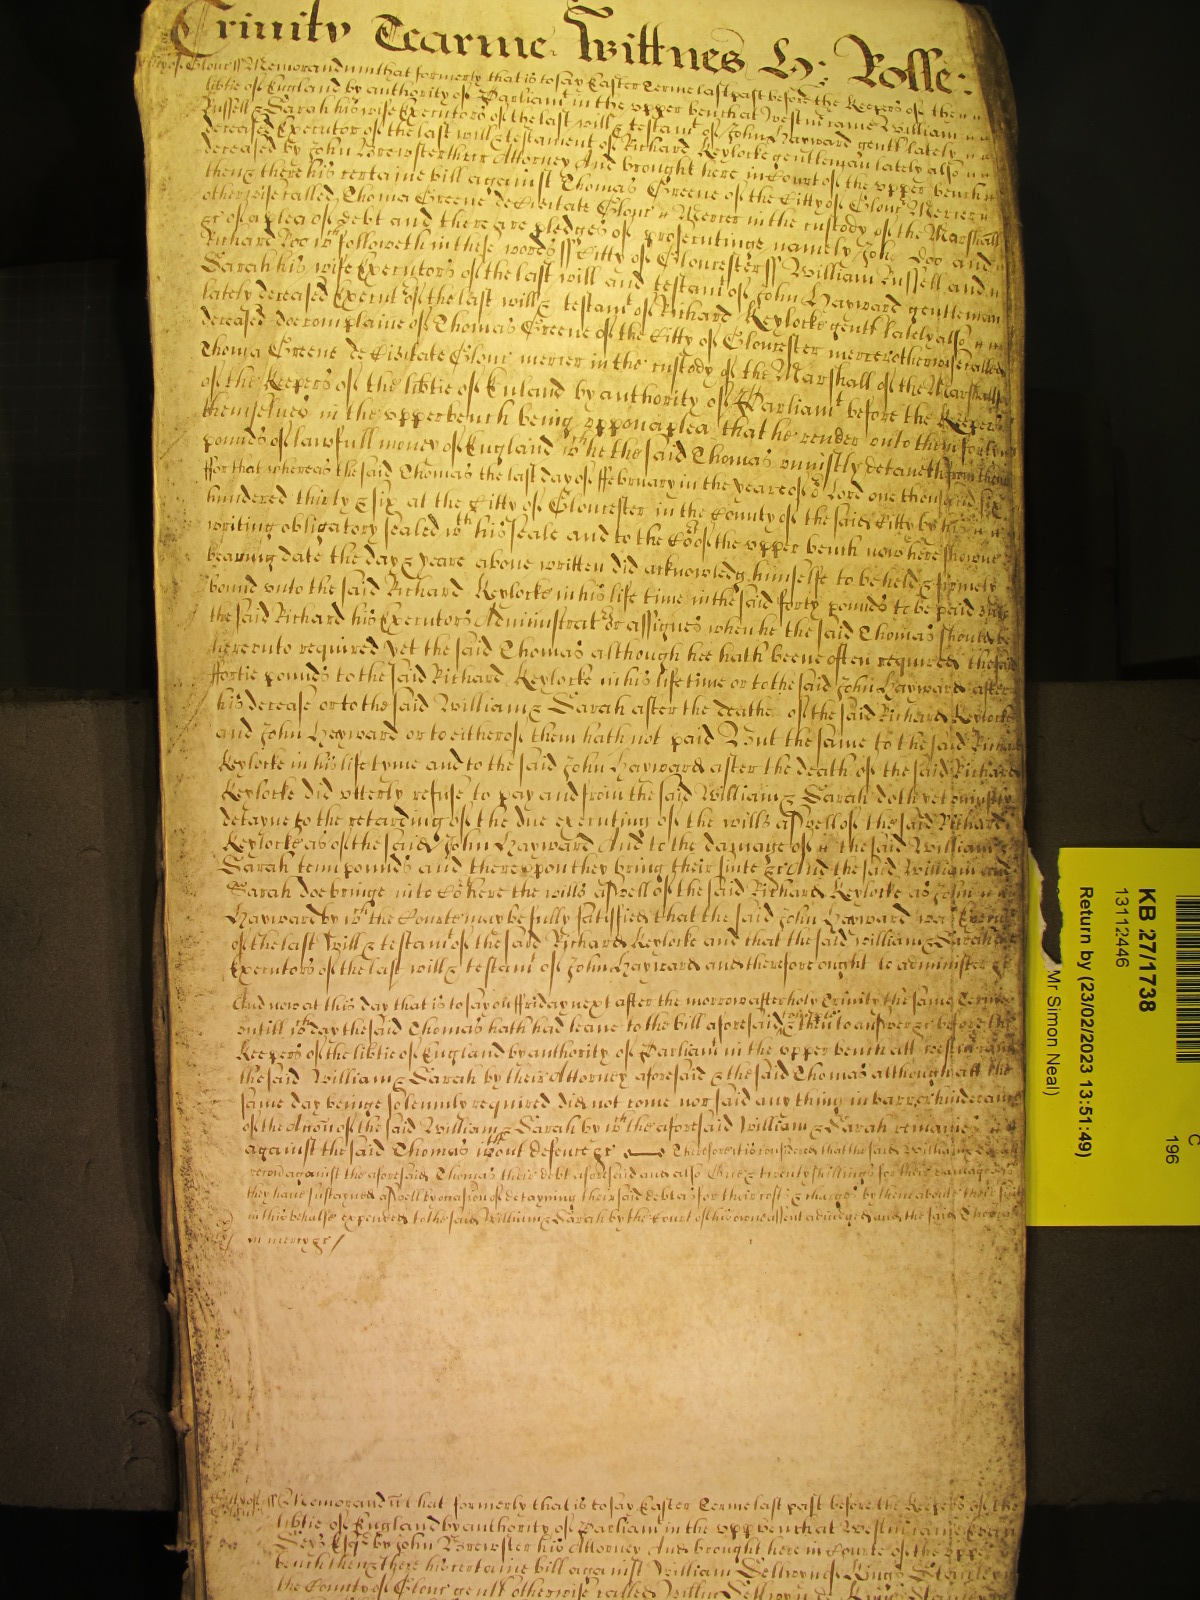 Trinity Tearme Wittnes H: Rolle:
Citty of Glouc ss Memorandum that formerly that is to say Easter Terme last past before the Keepers of the
libtie of England by authority of Parliamt in the upper bench at Westm came William
Russell & Sarah his wife Executors of the last will & testamt of John Hayward gentl lately
deceased Executor of the last will & testament of Richard Keylocke gentleman lately also
deceased by John Brewster their Attorney And brought here in Court of the upper bench
then & there his certaine bill against Thomas Greene of the Citty of Glouc Mercer
otherwise called Thoma Greene de Civitate Glouc Mercer in the custody of the Marshall
&c of a plea of debt and there are pledges of prosecutinge namely John Doo and
Richard Roo wch followeth in these words ss Citty of Gloucester ss William Russell and
Sarah his wife Executors of the last will and testamt of John Hayward gentleman
lately deceased Execut of the last will & testamt of Richard Keylocke gentl lately also
deceased doe complaine of Thomas Greene of the Citty of Gloucester mercer otherwise called
Thoma Greene de Civitate Glouc mercer in the custody of the Marshall of the Marshallsea
of the Keepers of the libtie of England by authority of Parliamt before the Keepers
themselves in the upper bench being uppon a plea that he render unto them forty
pounds of lawfull money of England wch he the said Thomas uniustly detaneth from them
ffor that whereas the said Thomas the last day of ffebruary in the yeare of or Lord one thousand six
hundered thirty & six at the Citty of Gloucester in the County of the said Citty by his
writing obligatory sealed wth his seale and to the Cort of the upper bench now here showne
bearing date the day & yeare above written did acknowledg himselfe to be held & firmely
bound unto the said Richard Keylocke in his life time in the said forty pounds to be paid unto
the said Richard his Executors Administrators or assignes when he the said Thomas should be
thereunto required yet the said Thomas although hee hath beene often required the said
ffortie pounds to the said Richard Keylocke in his life time or to the said John Hayward after
his decease or to the said William & Sarah after the deathe of the said Richard Keylocke
and John Hayward or to either of them hath not paid But the same to the said Richard
Keylocke in his life tyme and to the said John Hayward after the death of the said Richard
Keylocke did utterly refuse to pay and from the said William & Sarah doth yet uniustly
detayne to the retarding of the due executing of the wills aswell of the said Richard
Keylocke as of the said John Hayward And to the damage of the said William &
Sarah tenn pounds and thereupon they bring their suite &c And the said William and
Sarah doe bringe into Cort here the wills aswell of the said Richard Keylocke as John
Hayward by wch the Courte may be fully satisfied that the said John Hayward was Execut
of the last will & testamt of the said Richard Keylocke and that the said William & Sarah are
Executors of the last will & testamt of John Hayward and therefore ought to administer &c
And now at this day that is to say on ffriday next after the morrow after holy Trinity the same Terme
untill wch day the said Thomas hath had leave to the bill aforesaid & then to answer &c before the
Keepers of the libtie of England by authority of Parliamt in the upper bench att Westm came
the said William & Sarah by their Attorney aforesaid & the said Thomas although att the
same day beinge solemnly required did not come nor said any thing in barr or hinderance
of the Action of the said William & Sarah by wch the aforesaid William & Sarah remaine
against the said Thomas wthout defence &c Therefore it is considered that the said William & Sarah
recov against the aforesaid Thomas their debt aforesaid and also ffive & twenty shillings for their damages wch
they have sustayned aswell by occasion of detayning their said debt as for their costs & charges by them about their suit
in this behalfe expended to the said William & Sarah by the Court of their owne assent adiudged and the said Thomas
in mercy &c
Citty of ss Memorand that formerly that is to say Easter Terme last past before the Keepers of the
libtie of England by authority of Parliamt in the upper bench at Westm came
Esqr by John Brewster his Attorney And brought here in Courte of the upper
bench then & there his certaine bill against William Sellwyn of Kings Stanley in
the County of Glouc gentl otherwise called Willm Sellwyn de Kings Stanley
KB 27/1738
13112446
Return by (23/02/2023 13:51:49)
Mr Simon Neal)
C
196